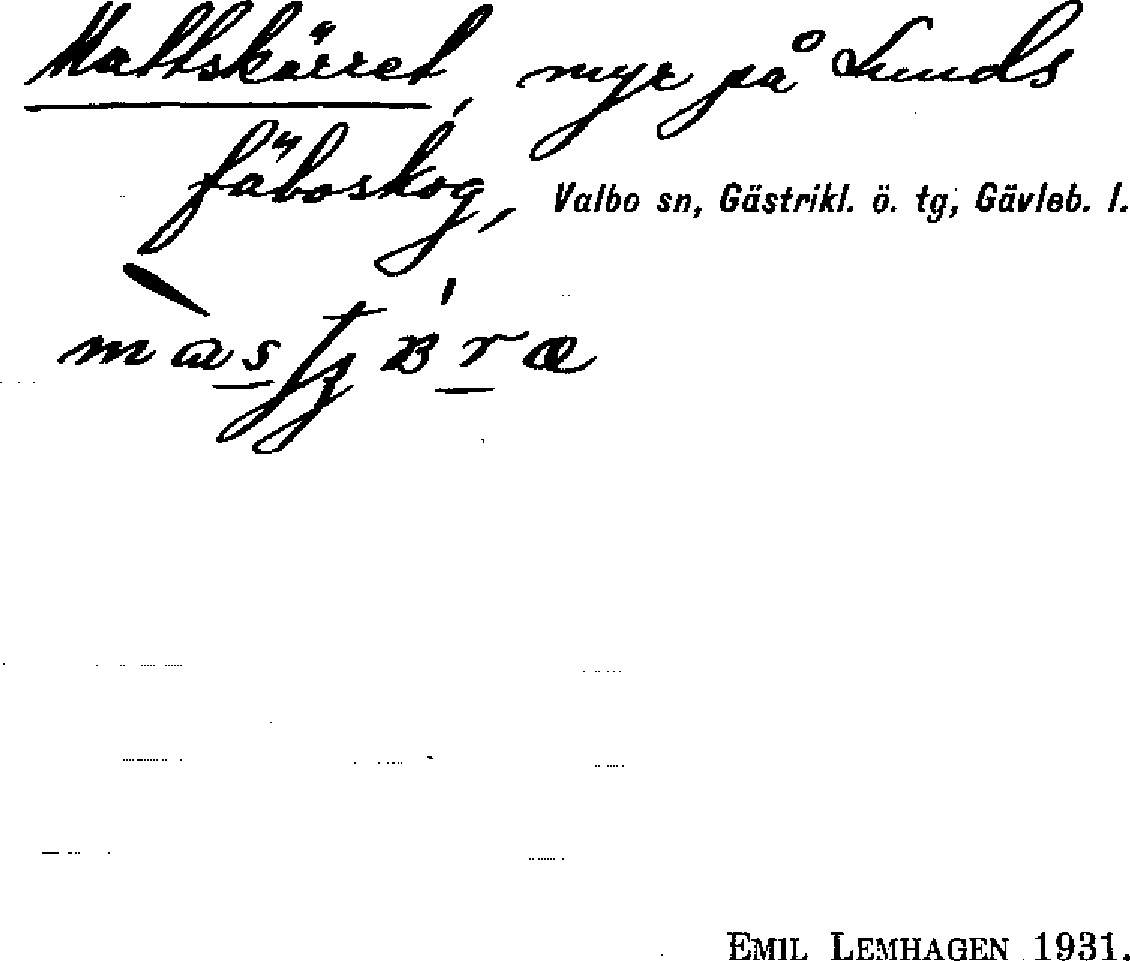 Mattskärret, myr på Lunds
fäboskog, Valbo sn, Gästrikl. ö. tg, Gävleb. l.
EMIL LEMHAGEN 1931.